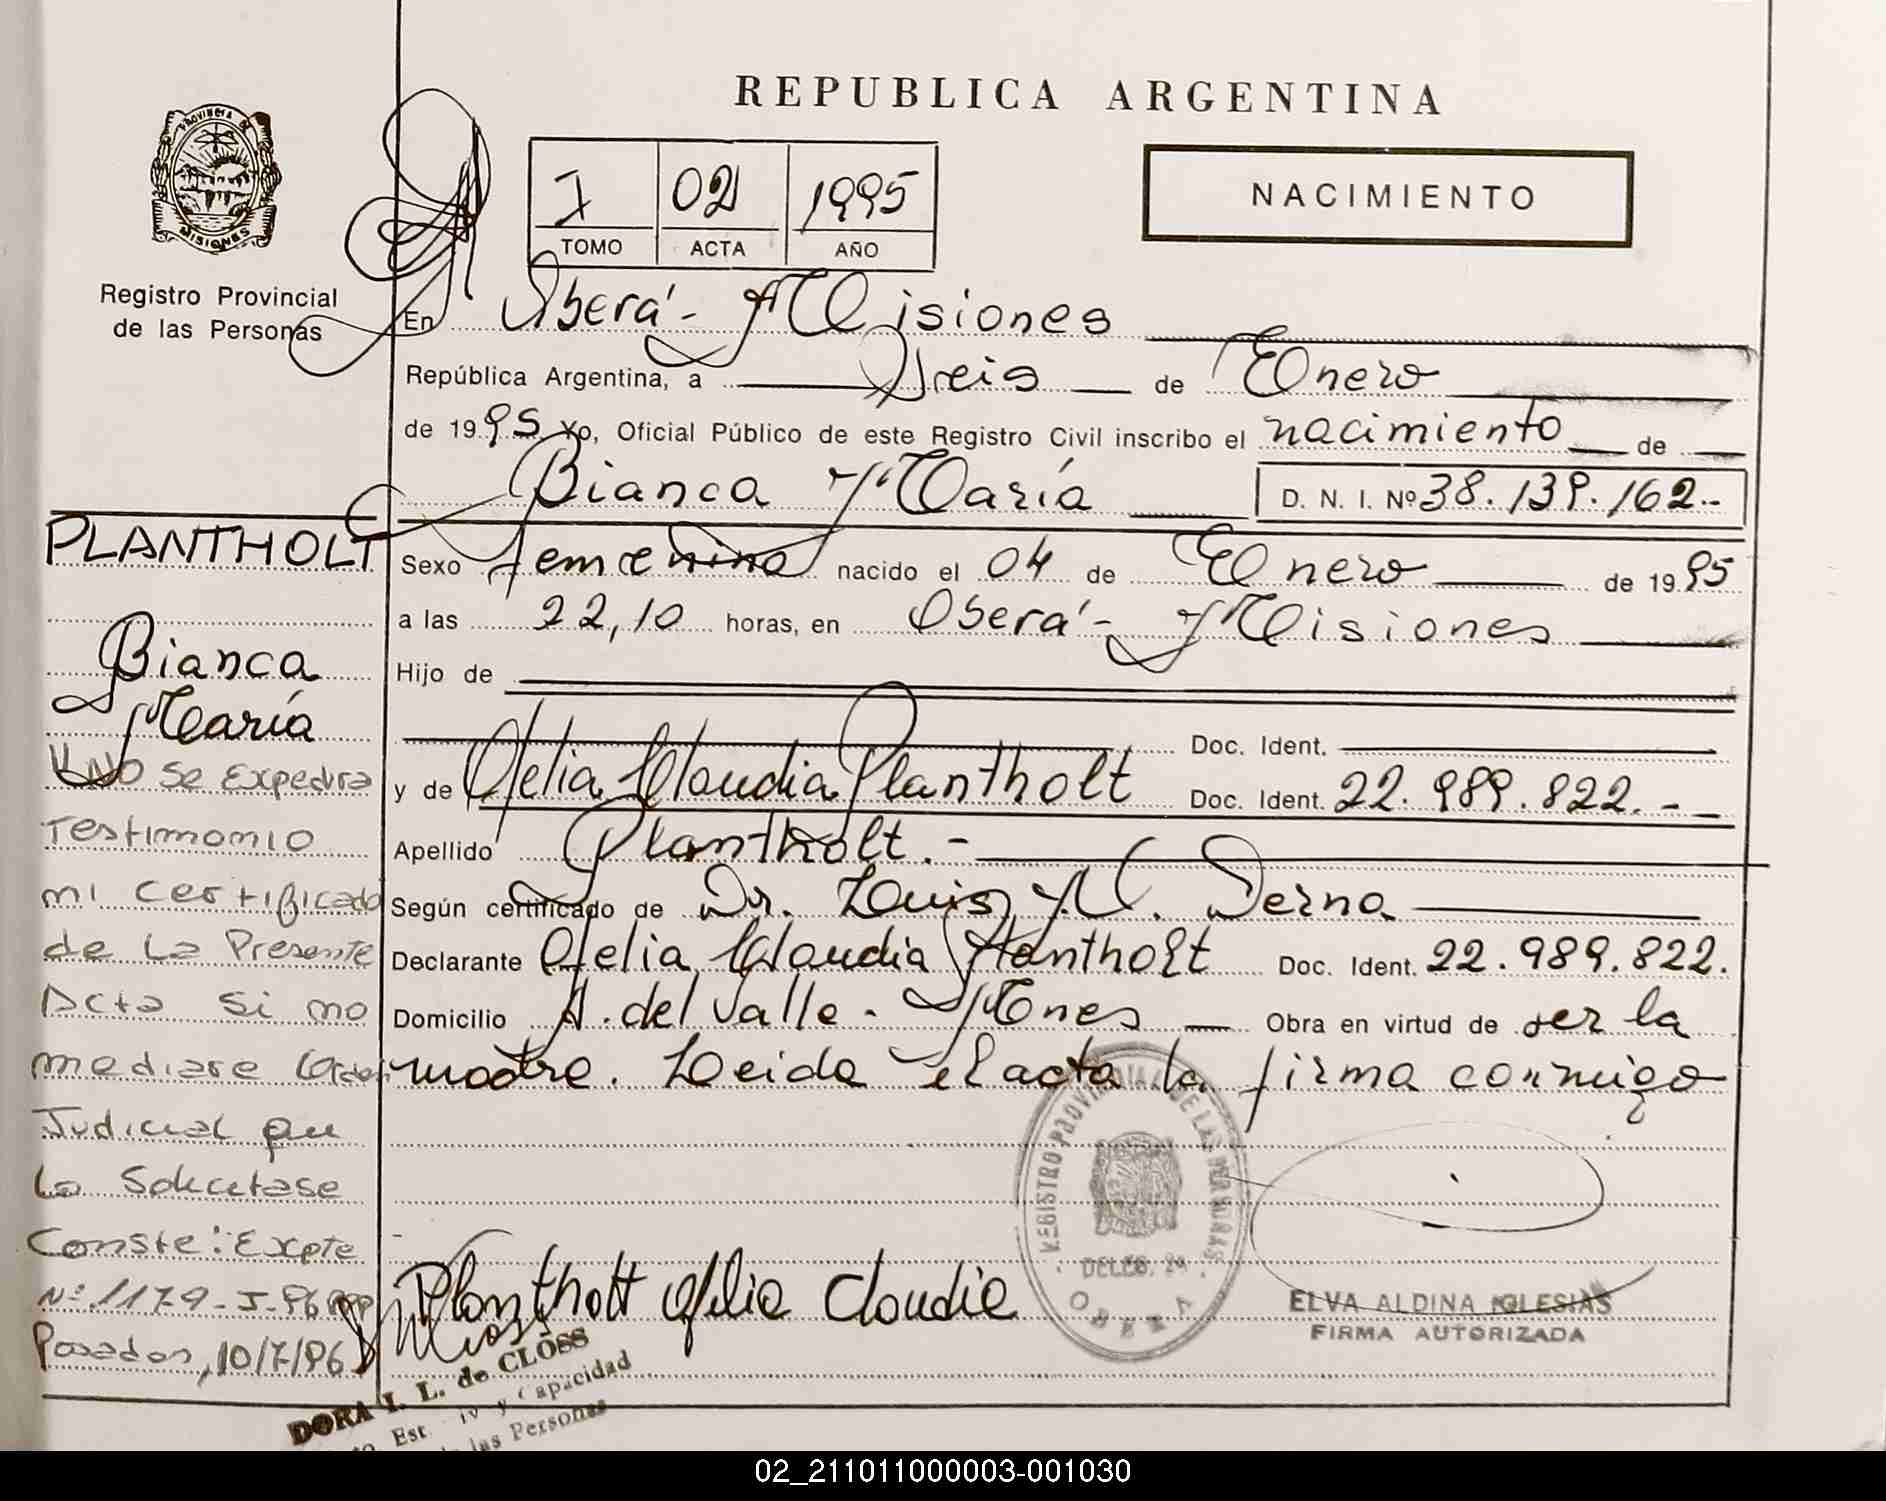 REPUBLICA ARGENTINA
PROVINCIA DE
MISIONES
Registro Provincial
de las Personas
I 02 1995
TOMO ACTA AÑO
NACIMIENTO
En Oberá - Misiones
República Argentina, a Seis de Enero
de 1995 Yo, Oficial Público de este Registro Civil inscribo el nacimiento de
Bianca María D. N. I. Nº 38.139.162.-
Sexo femenino nacido el 04 de Enero de 1995
a las 22,10 horas, en Oberá - Misiones
Hijo de
Doc. Ident.
y de Ofelia Claudia Plantholt Doc. Ident. 22.989.822.-
Apellido Plantholt.-
Según certificado de Dr. Luis M. Derna
Declarante Ofelia Claudia Plantholt Doc. Ident. 22.989.822.
Domicilio A. del Valle - Mnes Obra en virtud de ser la
madre. Leida el acta la firma conmigo
PLANTHOLT
Bianca
María
NO se Expedira
Testimonio
ni certificado
de La Presente
Acta si no
mediare Orden
Judicial que
Lo Solicitase
Conste: Expte
Nº 1179-J-96
Posadas, 10/7/96
Plantholt Ofelia Claudia
REGISTRO PROVINCIAL DE LAS PERSONAS
DELEG. 2ª
OBERA
ELVA ALDINA IGLESIAS
FIRMA AUTORIZADA
DORA I. L. de CLOSS
Est. Civ y Capacidad
de las Personas
02_211011000003-001030